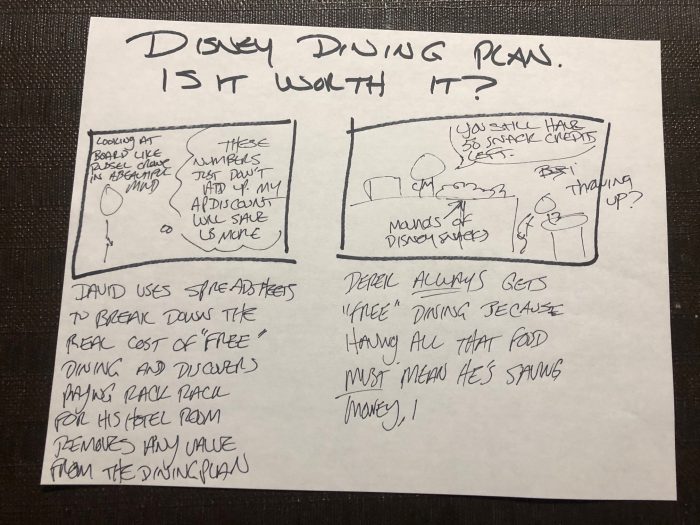 DISNEY DINING PLAN.
IS IT WORTH IT?
LOOKING AT
BOARD LIKE
RUSSEL CROWE
IN A BEAUTIFUL
MIND
THESE
NUMBERS
JUST DON'T
ADD UP. MY
AP DISCOUNT
WILL SAVE
US MORE
DAVID USES SPREADSHEETS
TO BREAK DOWN THE
REAL COST OF "FREE"
DINING AND DISCOVERS
PAYING RACK RACK
FOR HIS HOTEL ROOM
REMOVES ANY VALUE
FROM THE DINING PLAN
YOU STILL HAVE
50 SNACK CREDITS
LEFT.
CM
MOUNDS OF
DISNEY SNACKS
THROWING
UP?
DEREK ALWAYS GETS
"FREE" DINING BECAUSE
HAVING ALL THAT FOOD
MUST MEAN HE'S SAVING
MONEY, !